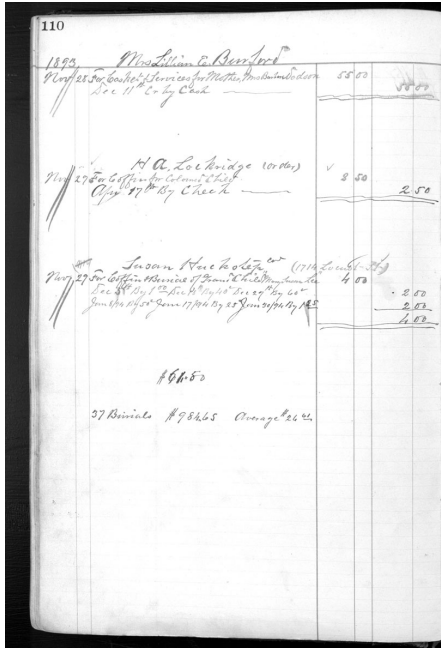 110
1893 Mrs Lillian E. Burford
Nov 28 For Casket & Services for Mother, Mrs Dodson 55 00
Dec 11th Cr by Cash 55 00
H A. Lockridge (order)
Nov 27 For Coffin for Colored Child 2 50
Apr 17th By Check 2 50
Susan Huckstep col (1714 Locust St)
Nov 29 For Coffin & Burial of Grand Child Lee 4 00
Dec By 1 00 Dec By 40c Dec 29th By 60c 2 00
By 50c Jan 17/94 By 25 Jan 30/94 By 1 25 2 00
4 00
$61.50
37 Burials $984.65 Average $26